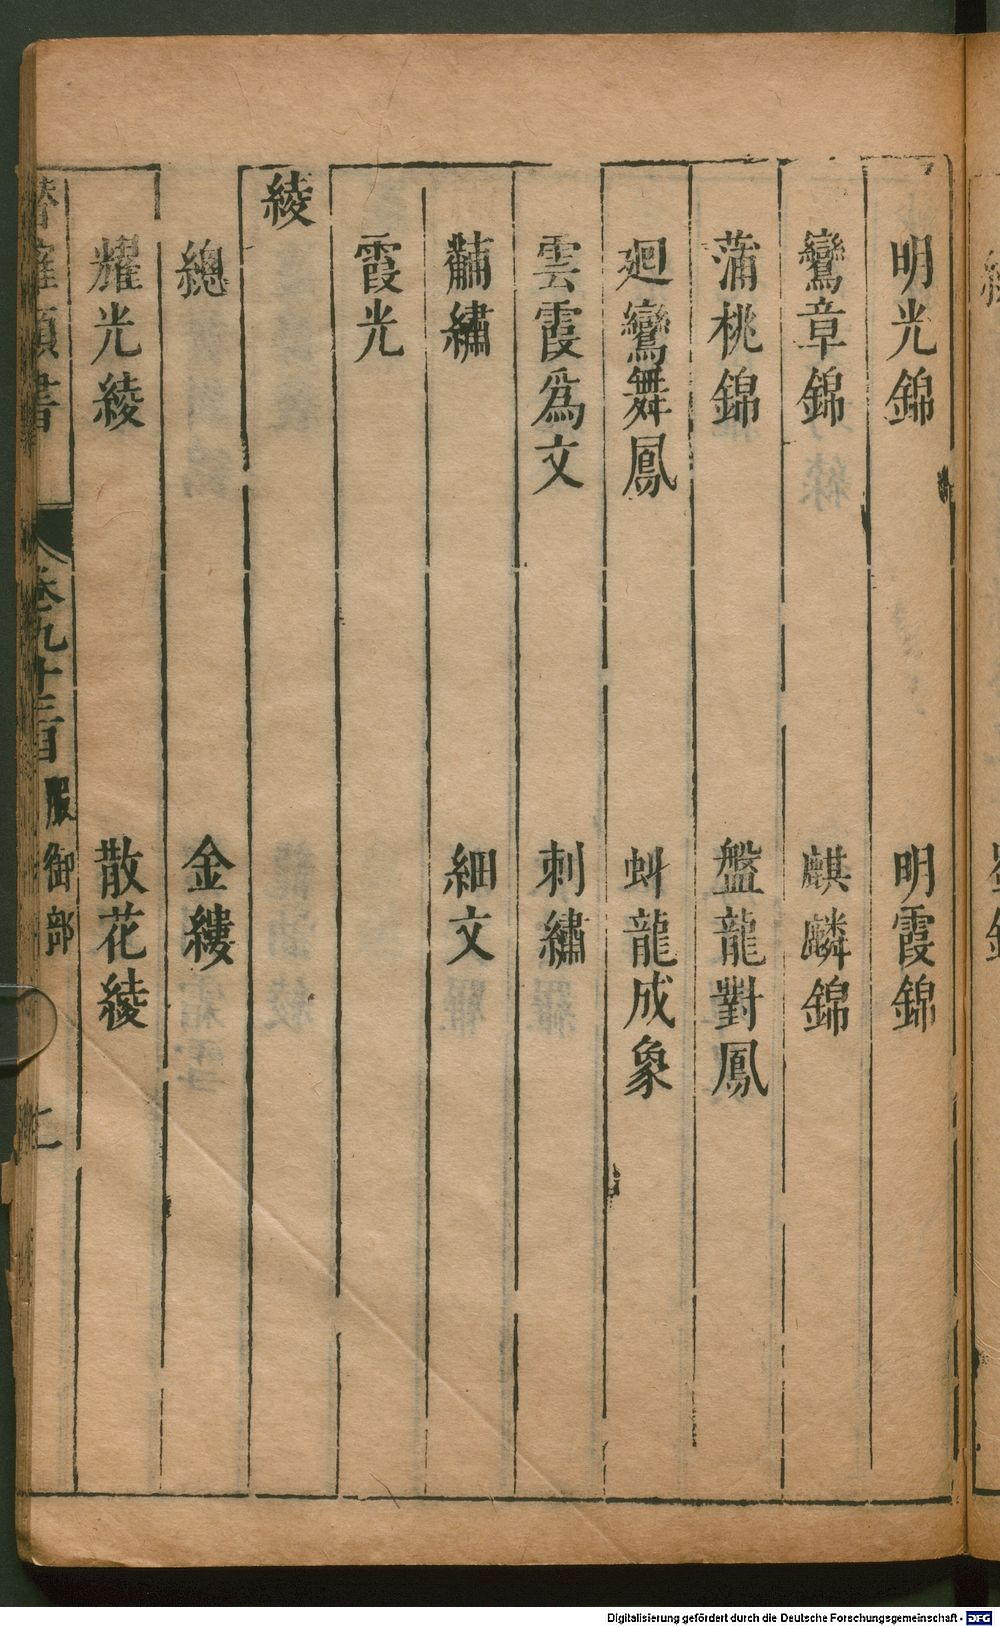 明光錦　明霞錦
鸞章錦　麒麟錦
蒲桃錦　盤龍對鳳
廻鸞舞鳳　蚪龍成象
雲霞爲文　刺繡
黼繡　細文
霞光
綾
總　金縷
耀光綾　散花綾
卷九十三百　服御部
Digitalisierung gefördert durch die Deutsche Forschungsgemeinschaft - DFG